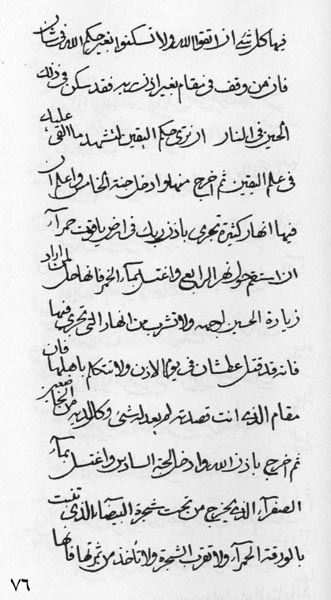 فيها كل شيء ان اتقوا الله ولا تسكنوا بغير حكم الله في شان
فان من وقف في مقام بغير اذن ربه فقد سكن في ذلك
الحين في النار ان ترى حكم اليقين لتشهد ما القى عليك
في علم اليقين ثم اخرج منها وادخل جنة الخامس واعلم ان
فيها انهار كثيرة تجرى باذن ربك في ارض ياقوت حمرآء
ان استقم حول نهر الرابع واغتسل بمآء الخمر فانها حل لمن اراد
زيارة الحسين لوجهه ولا تشرب من انهار التى تجرى فيها
فانه قد قتل عطشان في يوم الاذن ولا تتكلم باهلها فان
مقام الذى انت قصدته لم يعدله شئ وكل لديه
ثم اخرج باذن الله وادخل الجنة السادس واغتسل بمآء
الصفرآء الذى يخرج من تحت شجرة البيضآء الذى تنبت
بالورقة الحمرآء ولا تقرب الشجرة ولا تأخذ من ثمرتها فانها
٧٦